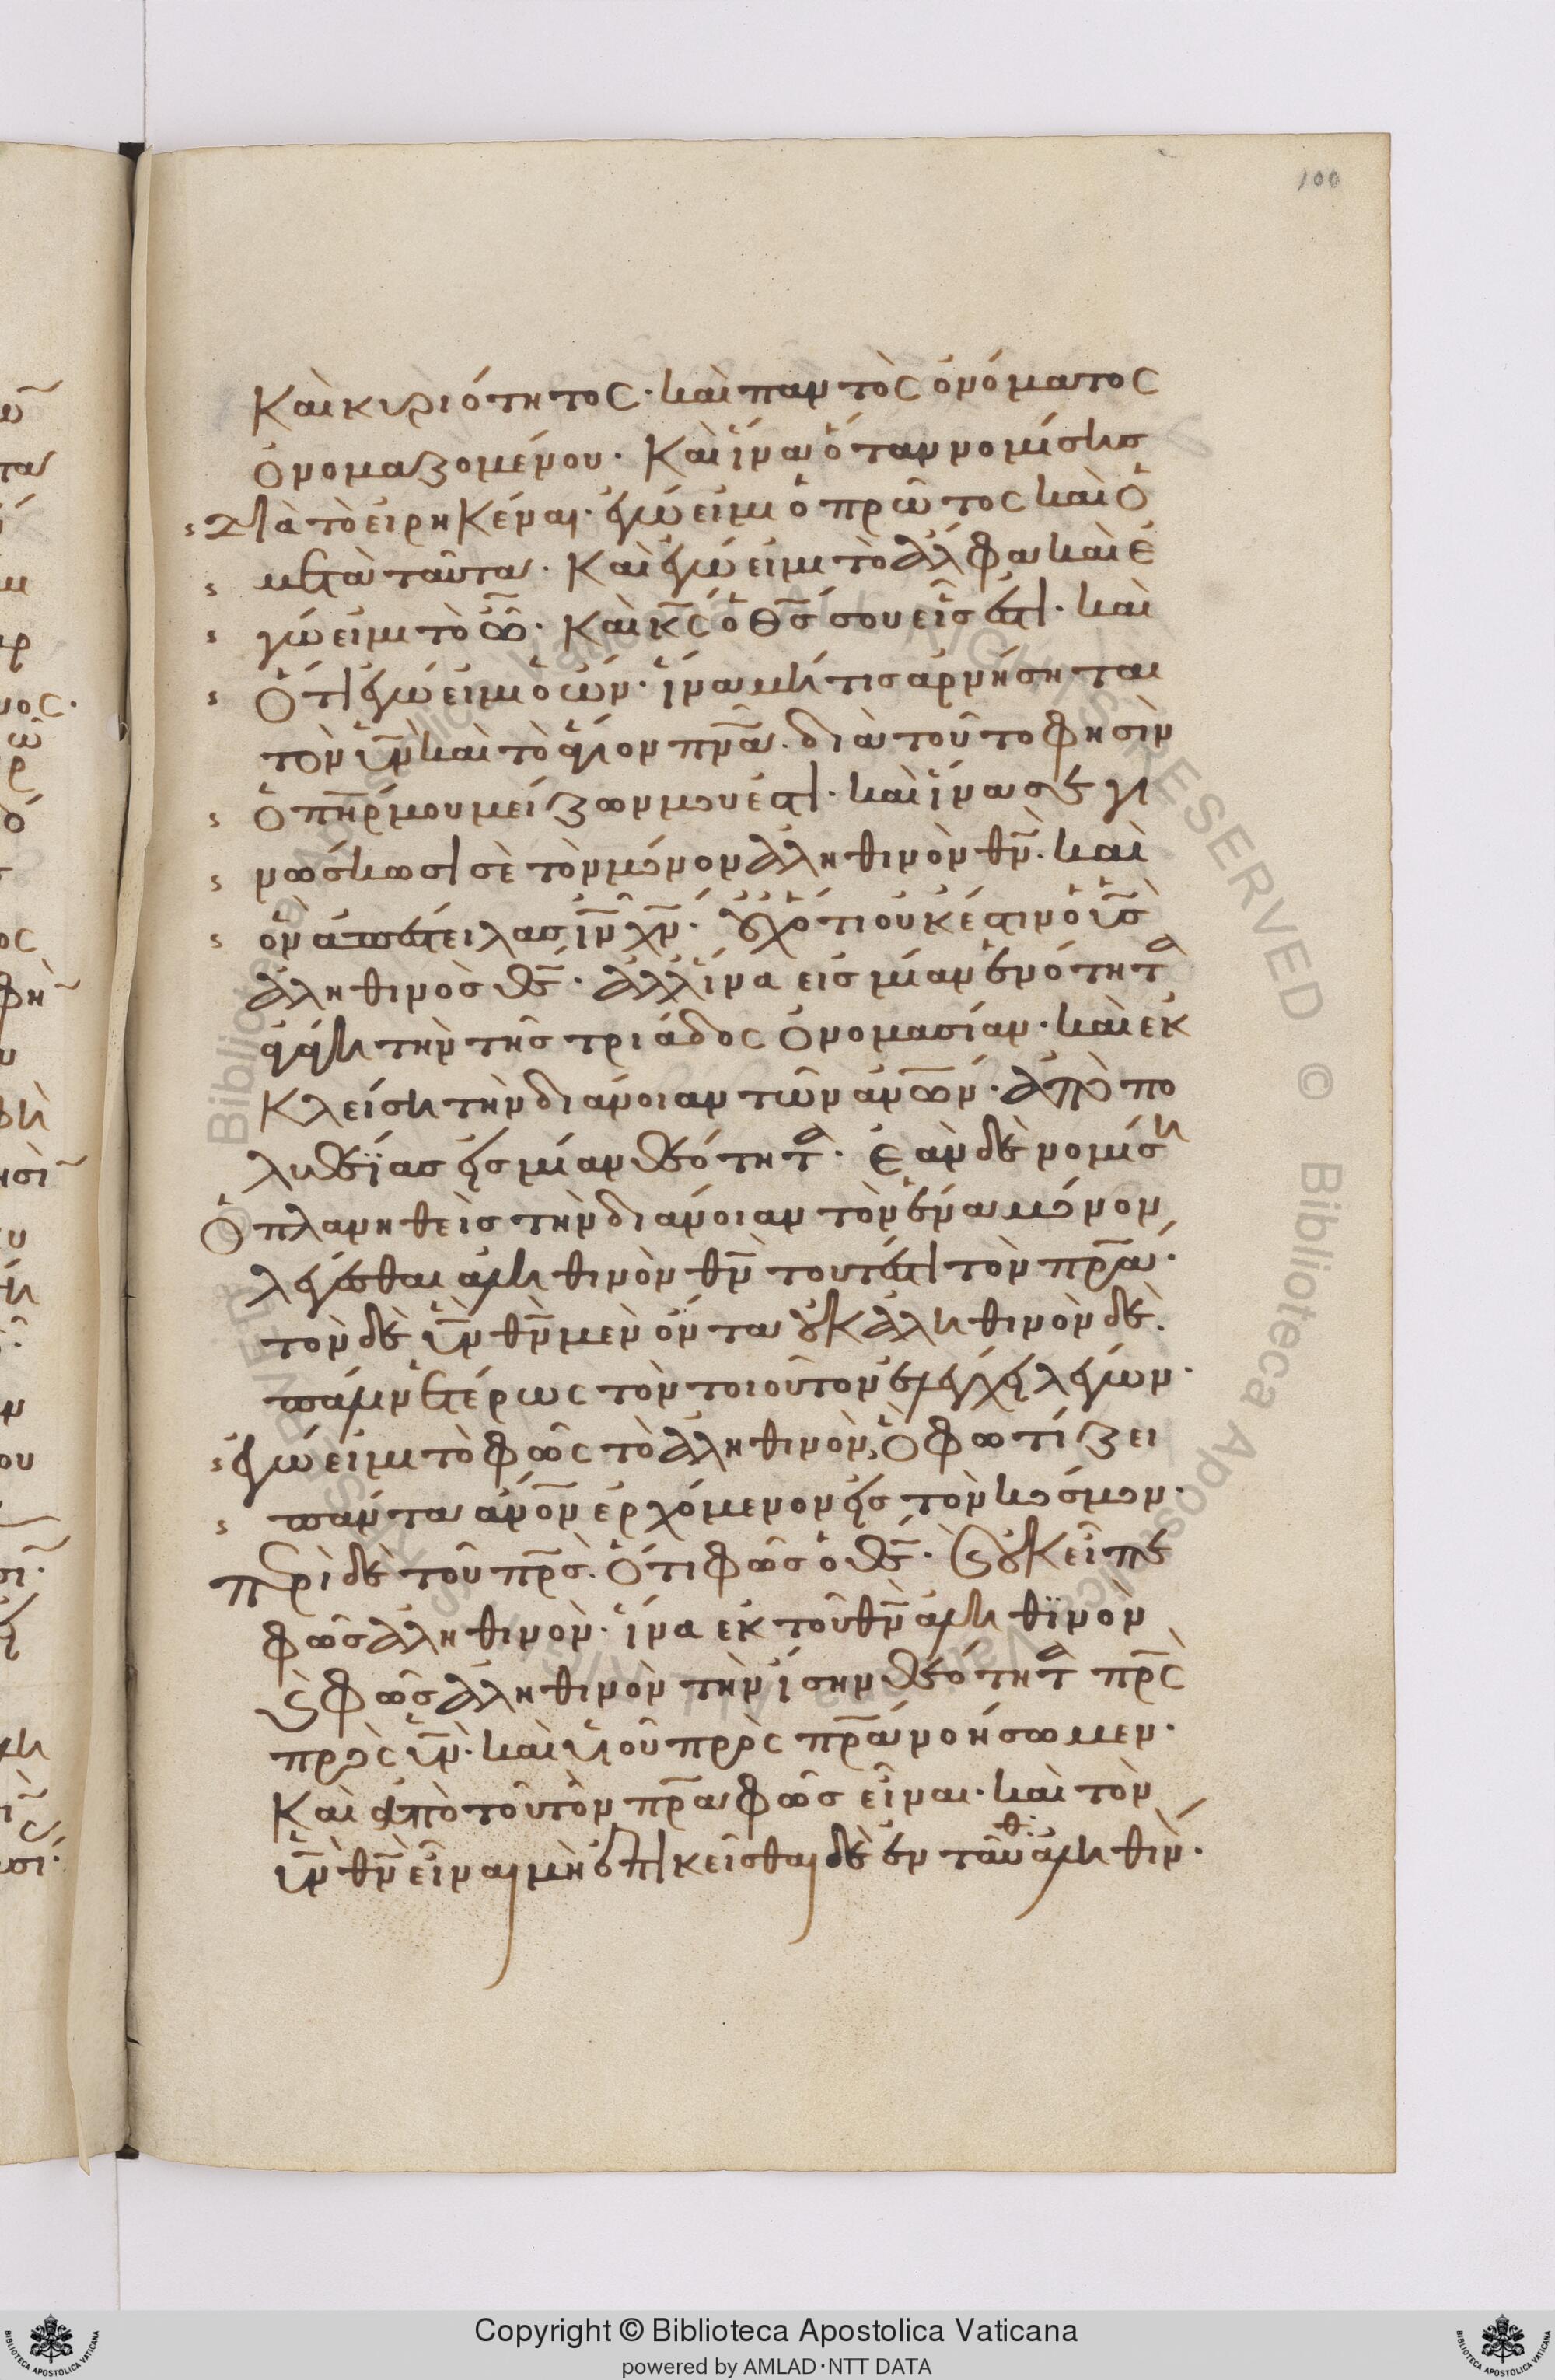 100
καὶ κυριότητος· καὶ παντὸς ὀνόματος
ὀνομαζομένου· Καὶ ἵνα ὅταν νομίσης
διὰ τὸ εἰρηκέναι· ἐγώ εἰμι ὁ πρῶτος καὶ ὁ
μετὰ ταῦτα· Καὶ ἐγώ εἰμι τὸ ἄλφα καὶ ἐ
γώ εἰμι τὸ ω̃· Καὶ κ̅ς̅ ὁ θ̅ς̅ σου εἷς ἐστι· καὶ
ὅτι ἐγώ εἰμι ὁ ὤν· ἵνα μή τις ἀρνήσηται
τὸν υ̅ν̅ καὶ τὸ ἅγιον πν̅α̅· διὰ τοῦτο φησὶν
ὁ πη̅ρ̅ μου μείζων μου ἐστι· καὶ ἵνα σε γι
νώσκωσι σὲ τὸν μόνον ἀληθινὸν θ̅ν̅· καὶ
ὃν ἀπέστειλας ι̅ν̅ χ̅ν̅· οὐχ ὅτι οὐκ ἔστιν ὁ υ̅ς̅
ἀληθινὸς θ̅ς̅· ἀλλ' ἵνα εἰς μίαν ἑνότητα
ἀγάγη τὴν τῆς τριάδος ὀνομασίαν· καὶ ἐκ
κλείση τὴν διάνοιαν τῶν αν̅ω̅ν· ἀπὸ πο
λυθεΐας εἰς μίαν θεότητα· Ἐὰν δὲ νομίση
ὁ πλανηθεὶς τὴν διάνοιαν τὸν ἕνα μόνον
λέγεσθαι ἀληθινὸν θ̅ν̅ τουτέστι τὸν πρ̅α̅·
τὸν δὲ υ̅ν̅ θ̅ν̅ μὲν ὄντα οὐκ ἀληθινὸν δέ.
πάλιν ἑτέρως τὸν τοιοῦτον ἐλέγχει λέγων·
ἐγώ εἰμι τὸ φῶς τὸ ἀληθινὸν, ὃ φωτίζει
πάντα αν̅ο̅ν ἐρχόμενον εἰς τὸν κόσμον·
περὶ δὲ τοῦ πρ̅ς̅· ὅτι φῶς ὁ θ̅ς̅· καὶ οὐκ εἶπε
φῶς ἀληθινόν· ἵνα ἐκ τοῦ θ̅ν̅ ἀληθϊνὸν
καὶ φῶς ἀληθινὸν τὴν ἴσην θεότητα πρ̅ς̅
πρὸς υ̅ν̅· καὶ υἱοῦ πρὸς πρ̅α̅ νοήσωμεν·
Καὶ ἀπὸ τοῦ τὸν πρ̅α̅ φῶς εἶναι· καὶ τὸν
υ̅ν̅ θ̅ν̅ εἶναι μὴ ἐπικεῖσθαι δὲ ἐν ταυθ ἀληθιν·
Copyright © Biblioteca Apostolica Vaticana
powered by AMLAD·NTT DATA